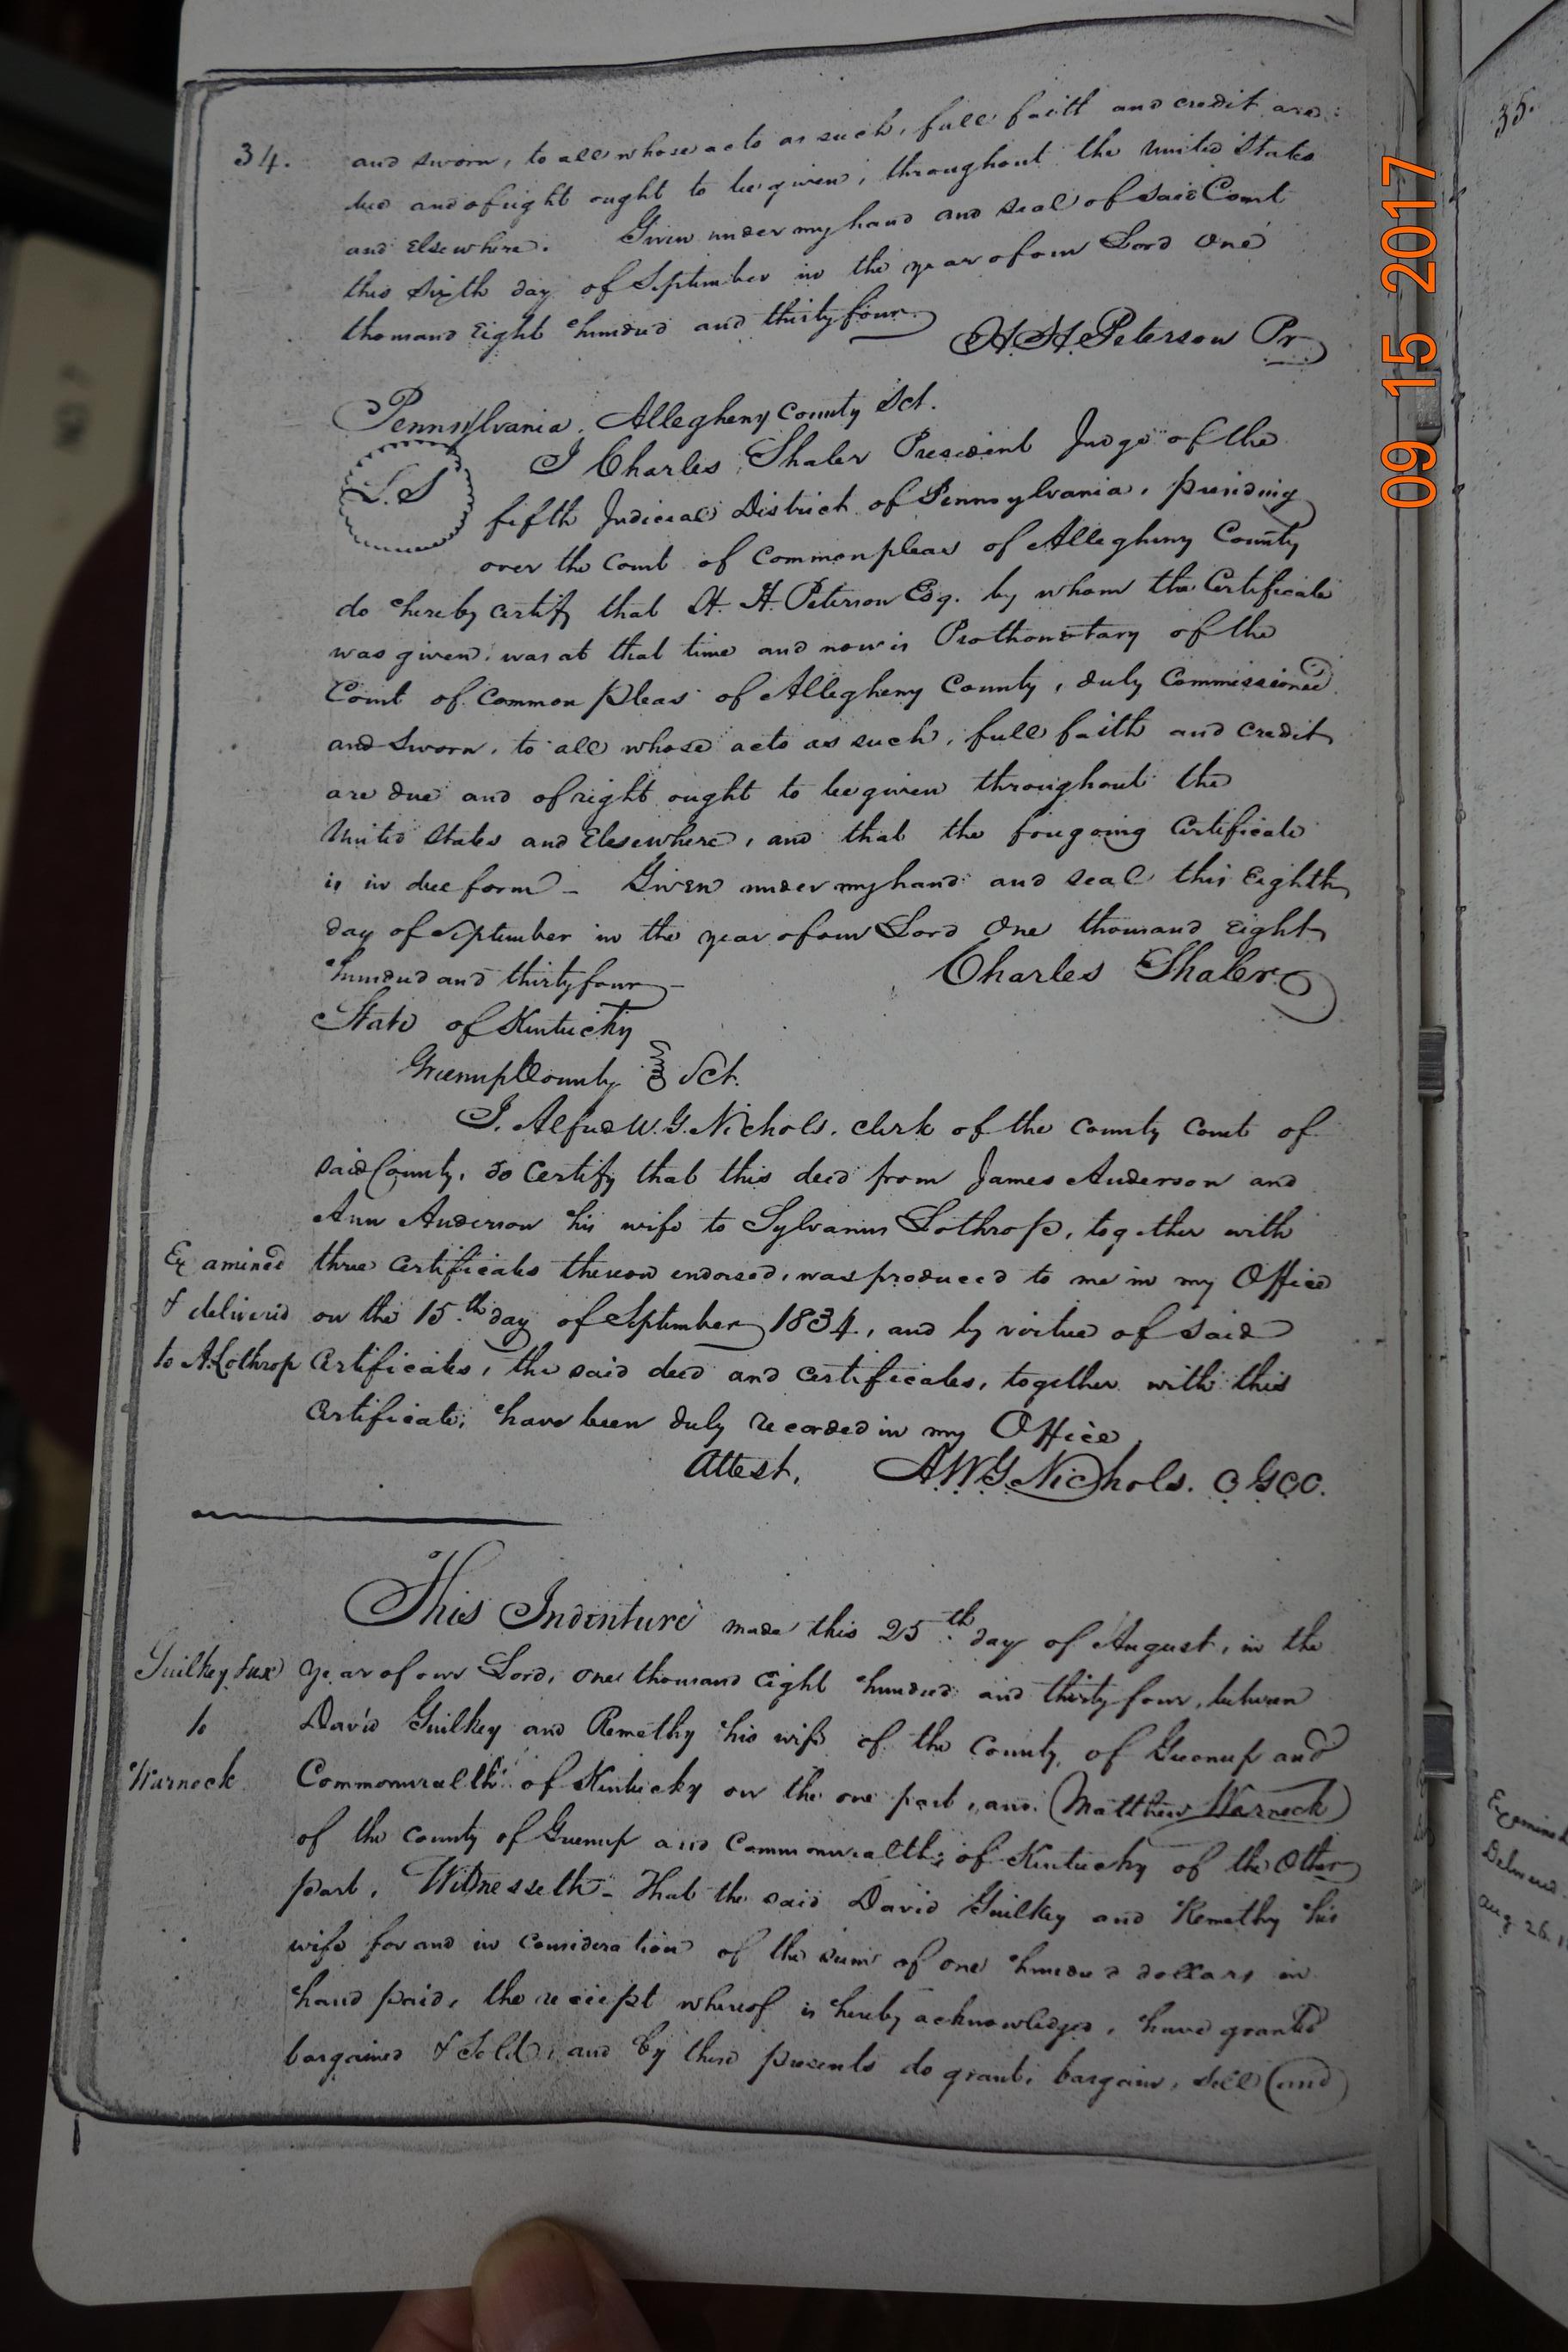 34.
and sworn, to all whose acts as such, full faith and credit are
due and of right ought to be given, throughout the United States
and Elsewhere. Given under my hand and seal of said Court
this sixth day of September in the year of our Lord One
thousand Eight hundred and thirty four.
H. H. Peterson Pr
Pennsylvania, Allegheny County Sct.
L.S
I Charles Shaler President Judge of the
fifth Judicial District of Pennsylvania, presiding
over the Court of Common pleas of Allegheny County
do hereby certify that H. H. Peterson Esq. by whom the Certificate
was given, was at that time and now is Prothonotary of the
Court of Common pleas of Allegheny County, duly Commissioned
and sworn, to all whose acts as such, full faith and credit
are due and of right ought to be given throughout the
United States and Elsewhere, and that the foregoing Certificate
is in due form - Given under my hand and seal this Eighth
day of September in the year of our Lord One thousand Eight
hundred and thirty four -
Charles Shaler
State of Kentucky
Greenup County Sct.
I, Alfred W. G. Nichols, clerk of the County Court of
said County, do certify that this deed from James Anderson and
Ann Anderson his wife to Sylvanus Lothrop, together with
three Certificates thereon endorsed, was produced to me in my Office
on the 15.th day of September 1834, and by virtue of said
Certificates, the said deed and Certificates, together with this
Certificate, have been duly recorded in my Office
Examined
& delivered
to A. Lothrop
Attest, A.W.G. Nichols. C.G.C.C.
This Indenture made this 25th day of August, in the
year of our Lord, one thousand Eight hundred and thirty four, between
David Guilkey and Remethy his wife of the County, of Greenup and
Commonwealth of Kentucky on the one part, and (Matthew Warnock)
of the county of Greenup and Commonwealth of Kentucky of the Other
part, Witnesseth - That the said David Guilkey and Remethy his
wife for and in Consideration of the sum of one hundred dollars in
hand paid, the receipt whereof is hereby acknowledged, have granted
bargained & Sold, and by these presents do grant, bargain, sell (and)
Guilkey & ux
to
Warnock
09 15 2017
35.
Examined
Delivered
Aug. 26.